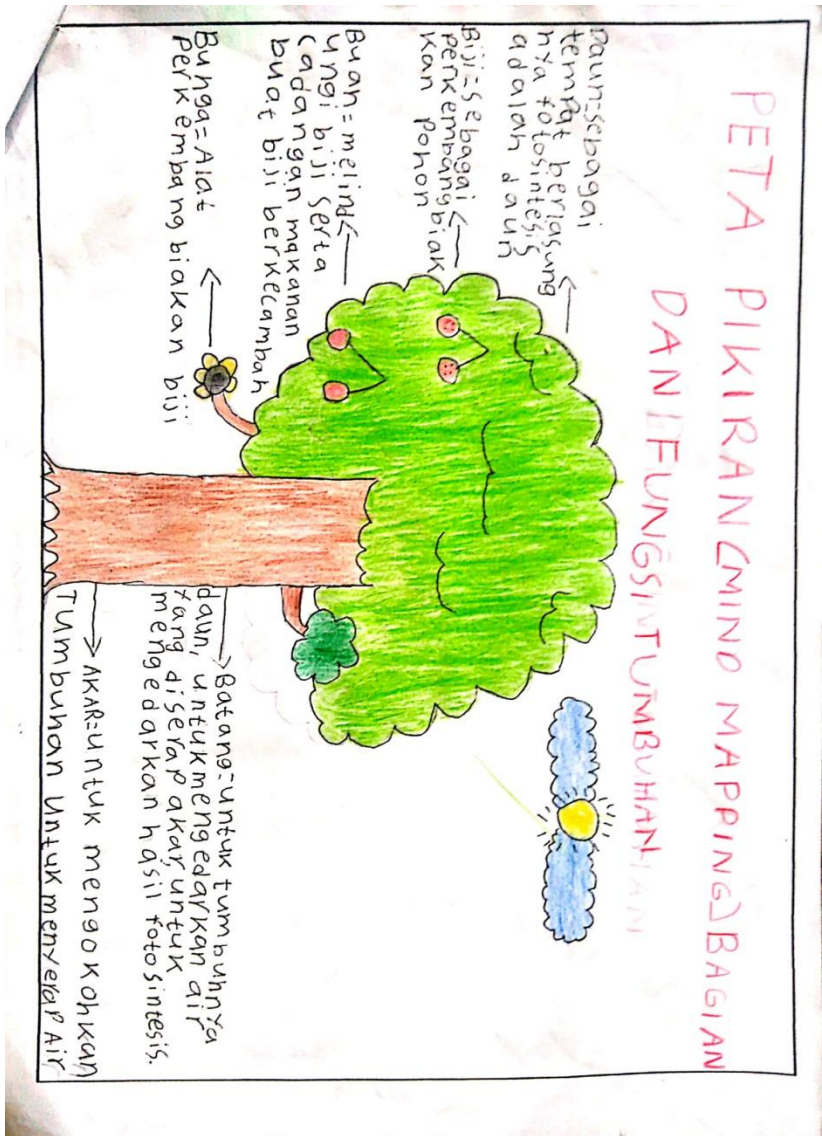 PETA PIKIRAN (MIND MAPPING) BAGIAN
DAN FUNGSI TUMBUHAN
Daun=sebagai
tempat berlasung
nya fotosintesis
adalah daun
Biji=sebagai
perkembangbiak
kan Pohon
Buan=melind
ungi biji serta
cadangan makanan
buat biji berkecambah
Bunga=Alat
Perkembangbiakan biji
Batang=untuk tumbuhnya
daun, untuk mengedarkan air
yang diserap akar, untuk
mengedarkan hasil fotosintesis.
AKAR=untuk mengokohkan
Tumbuhan Untuk menyerap Air